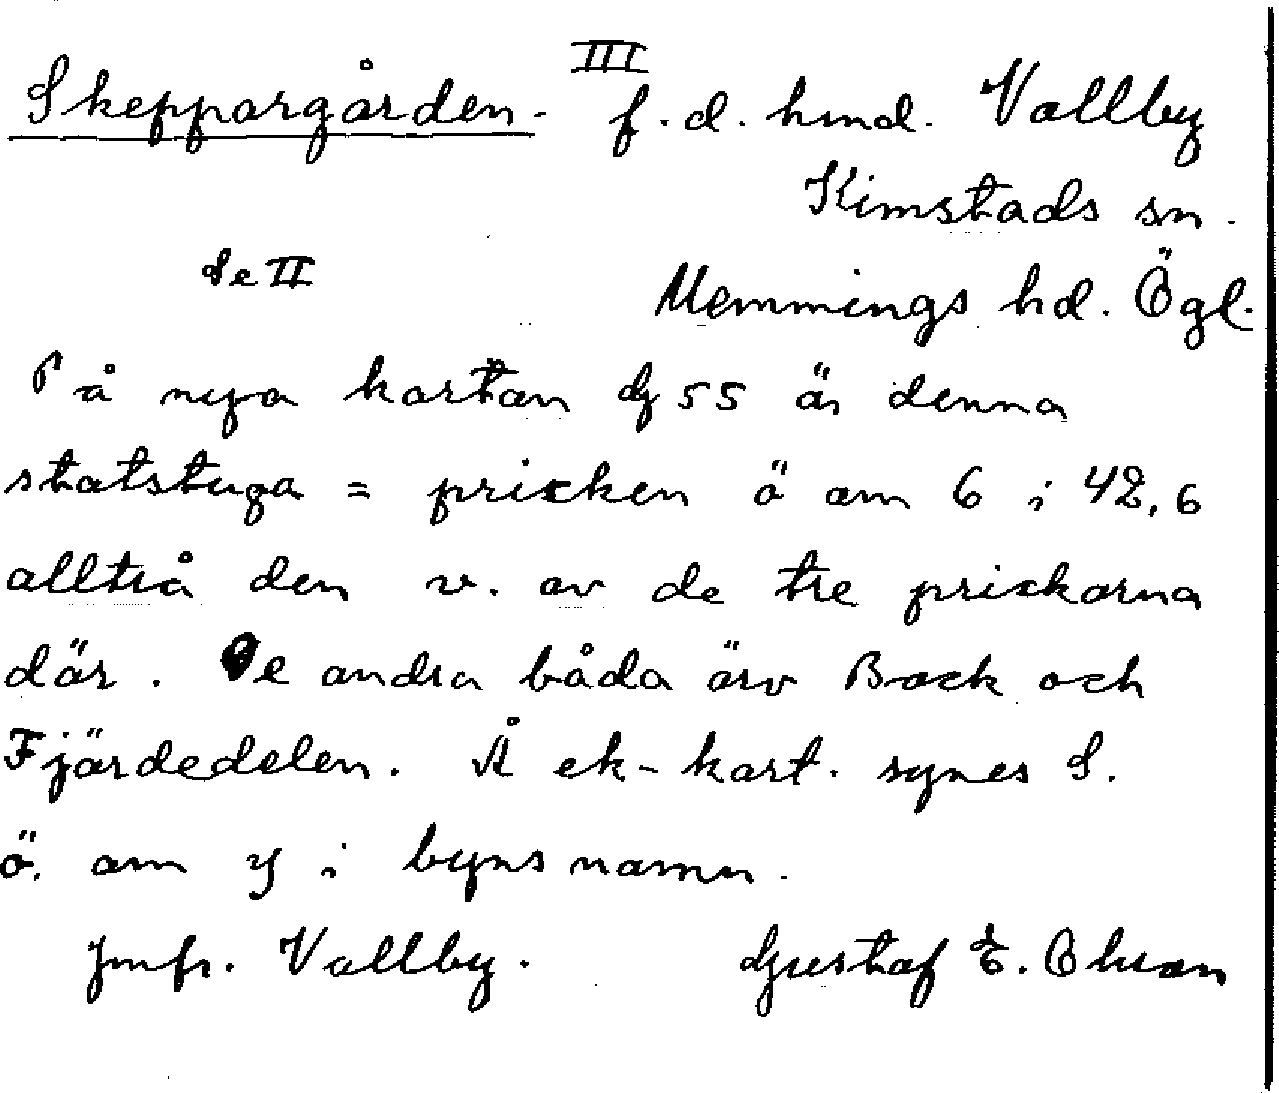 Skeppargården. III f.d. hmd. Vallby
Kimstads sn.
Se II Memmings hd. Ögl.
På nya kartan dg 55 är denna
statstuga = pricken ö om 6 i 42,6
alltså den v. av de tre prickarna
där. De andra båda äro Back och
Fjärdedelen. Å ek-kart. synes S.
ö. om y i byns namn.
Jmfr. Vallby. Gustaf E. Ohson